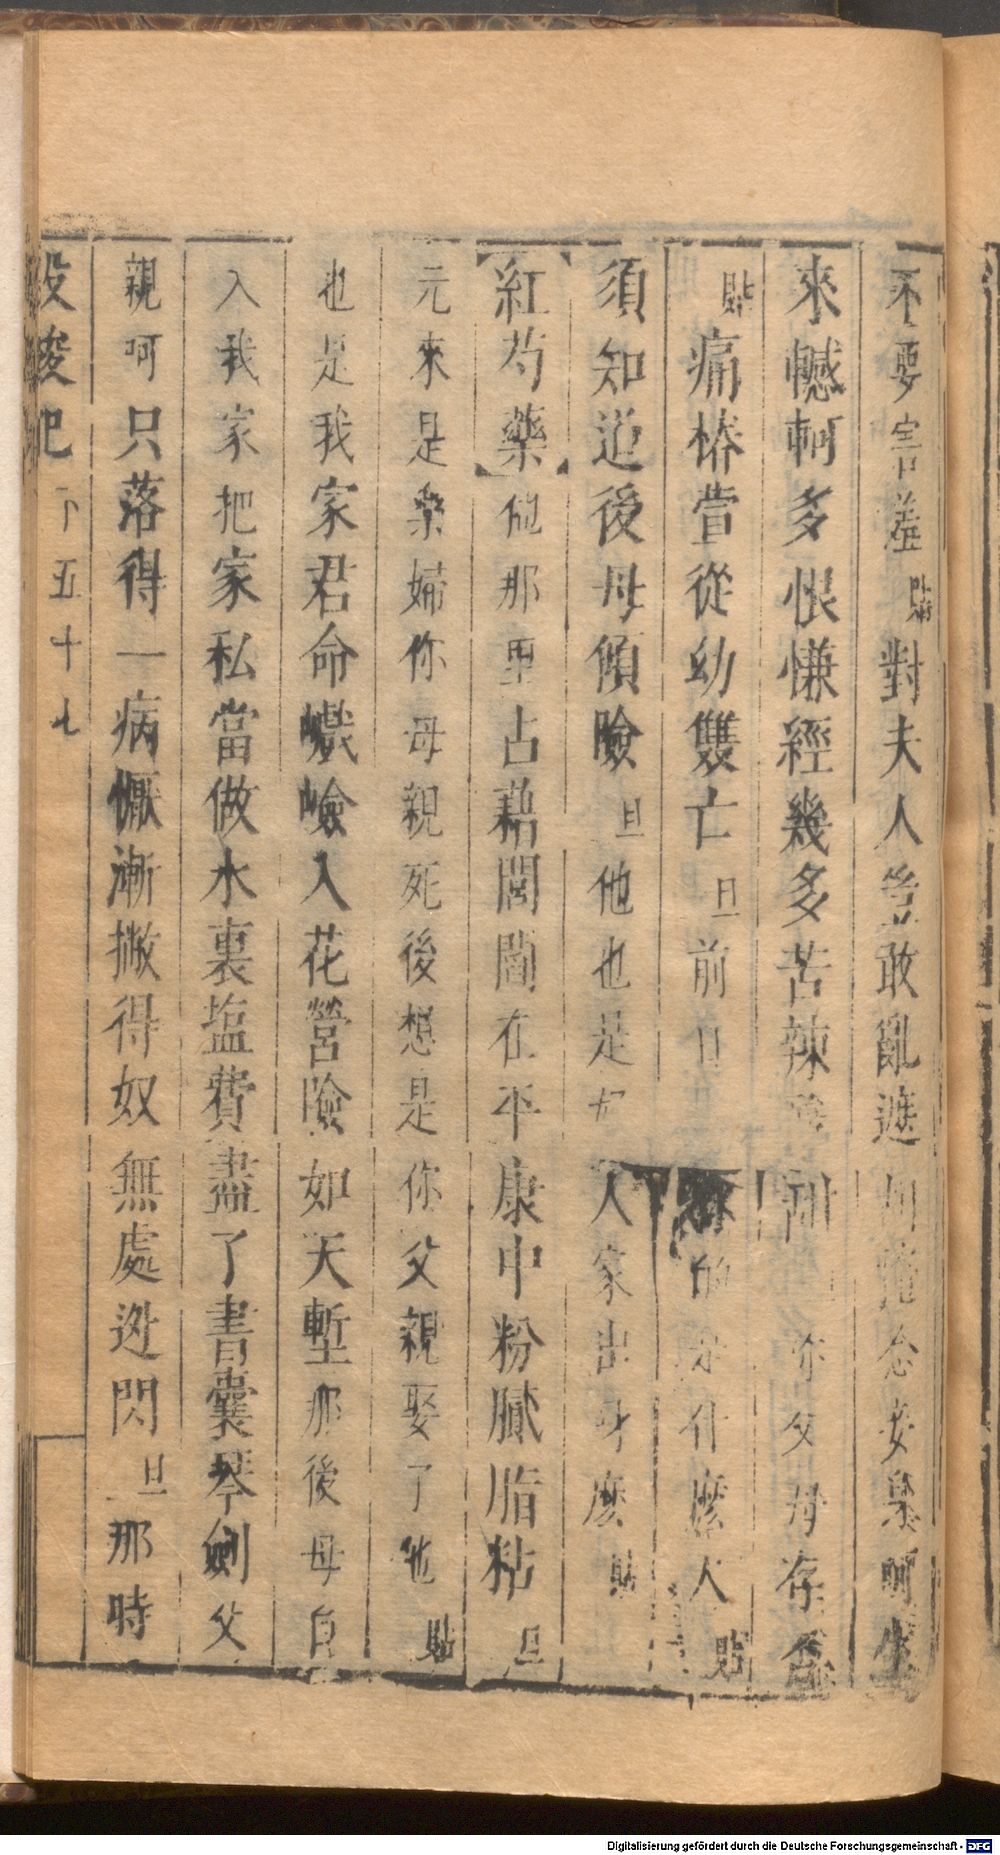 不要害羞貼對夫人豈敢亂遮 念妾梟呵生
來轗軻多恨慊經幾多苦辣 你父母存否
貼痛椿萱從幼雙亡旦前 的是什麼人貼
須知道後母傾險旦他也是 人家出身麼貼
紅芍藥他那里占藉閭閻在平康中粉膩脂粘旦
元來是樂婦你母親死後想是你父親娶了他貼
也是我家君命巇嶮入花營險如天塹那後母自
入我家把家私當做水裏塩費盡了書囊琴劍父
親呵只落得一病懨漸撇得奴無處迯閃旦那時
投梭記 下 五十七
Digitalisierung gefördert durch die Deutsche Forschungsgemeinschaft - DFG